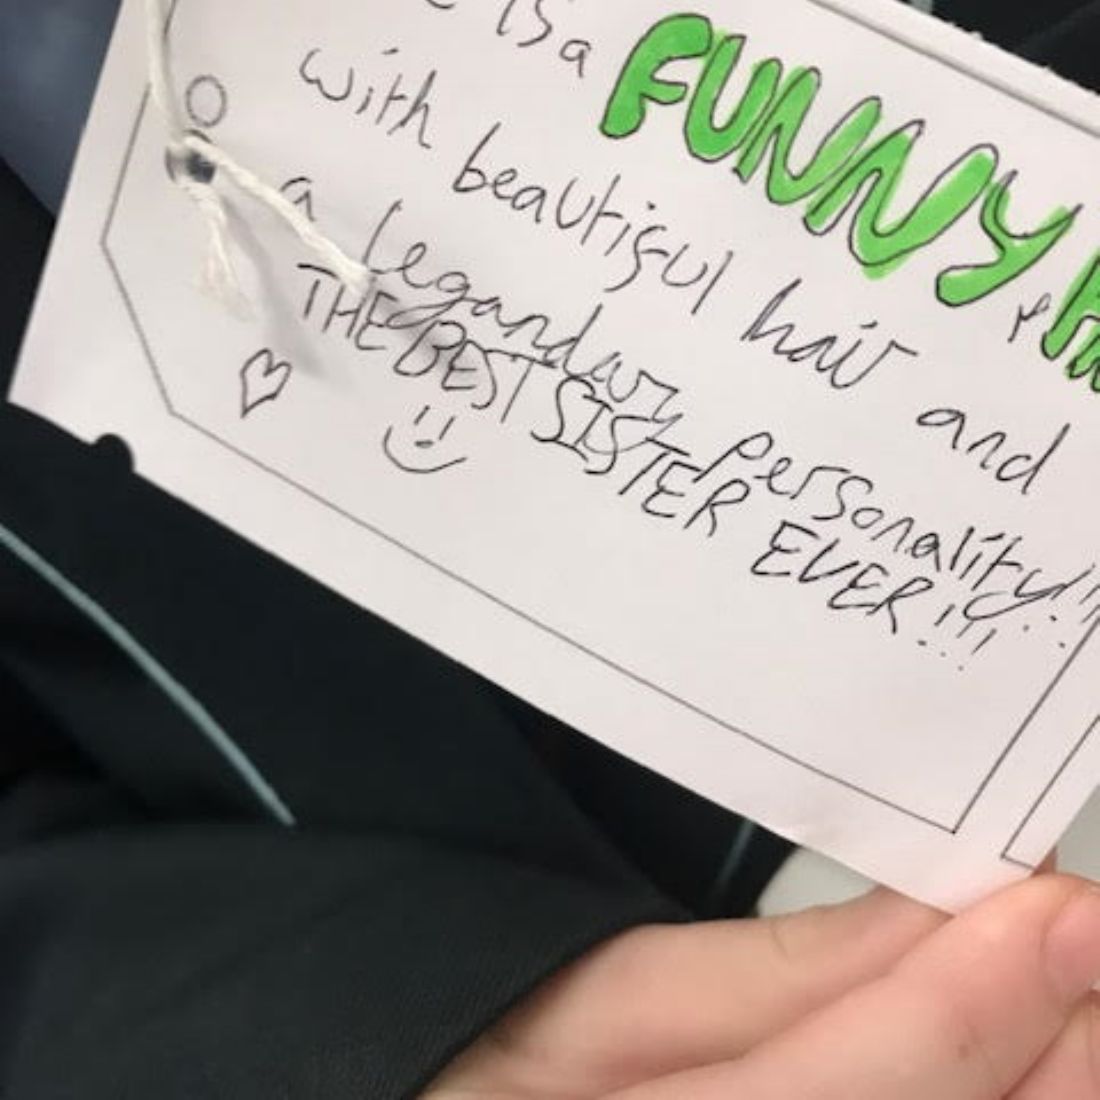 is a FUNNY
with beautiful hair and
a legandary personality!!
THE BEST SISTER EVER!!!